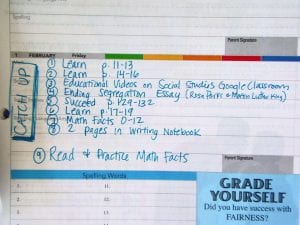 Spelling
Parent Signature
1 FEBRUARY Friday
CATCH UP
① Learn p. 11-13
② Learn p. 14-16
③ Educational Videos on Social Studies Google Classroom
④ Ending Segregation Essay (Rosa Parks & Martin Luther King)
⑤ Succeed p. 129-132
⑥ Learn p. 17-19
⑦ Math Facts 0-12
⑧ 2 pages in Writing Notebook
⑨ Read & Practice Math Facts
Parent Signature
Spelling Words
1. 11.
2. 12.
3. 13.
GRADE
YOURSELF
Did you have success with
FAIRNESS?